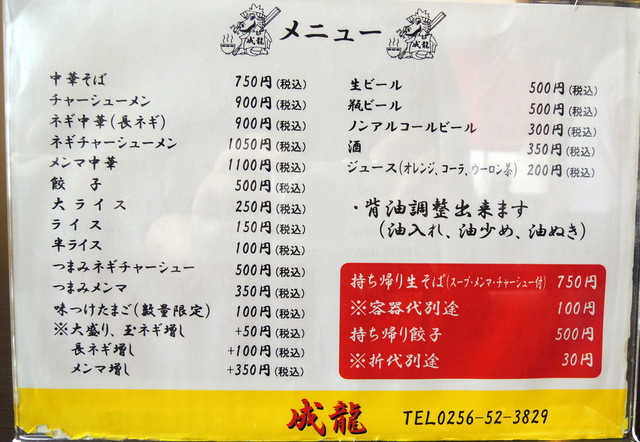 成龍 メニュー 成龍
中華そば 750円(税込)
チャーシューメン 900円(税込)
ネギ中華(長ネギ) 900円(税込)
ネギチャーシューメン 1050円(税込)
メンマ中華 1100円(税込)
餃子 500円(税込)
大ライス 250円(税込)
ライス 150円(税込)
半ライス 100円(税込)
つまみネギチャーシュー 500円(税込)
つまみメンマ 350円(税込)
味つけたまご(数量限定) 100円(税込)
※大盛り、玉ネギ増し +50円(税込)
長ネギ増し +100円(税込)
メンマ増し +350円(税込)
生ビール 500円(税込)
瓶ビール 500円(税込)
ノンアルコールビール 300円(税込)
酒 350円(税込)
ジュース(オレンジ、コーラ、ウーロン茶) 200円(税込)
・背油調整出来ます
(油入れ、油少め、油ぬき)
持ち帰り生そば(スープ・メンマ・チャーシュー付) 750円
※容器代別途 100円
持ち帰り餃子 500円
※折代別途 30円
成龍 TEL0256-52-3829